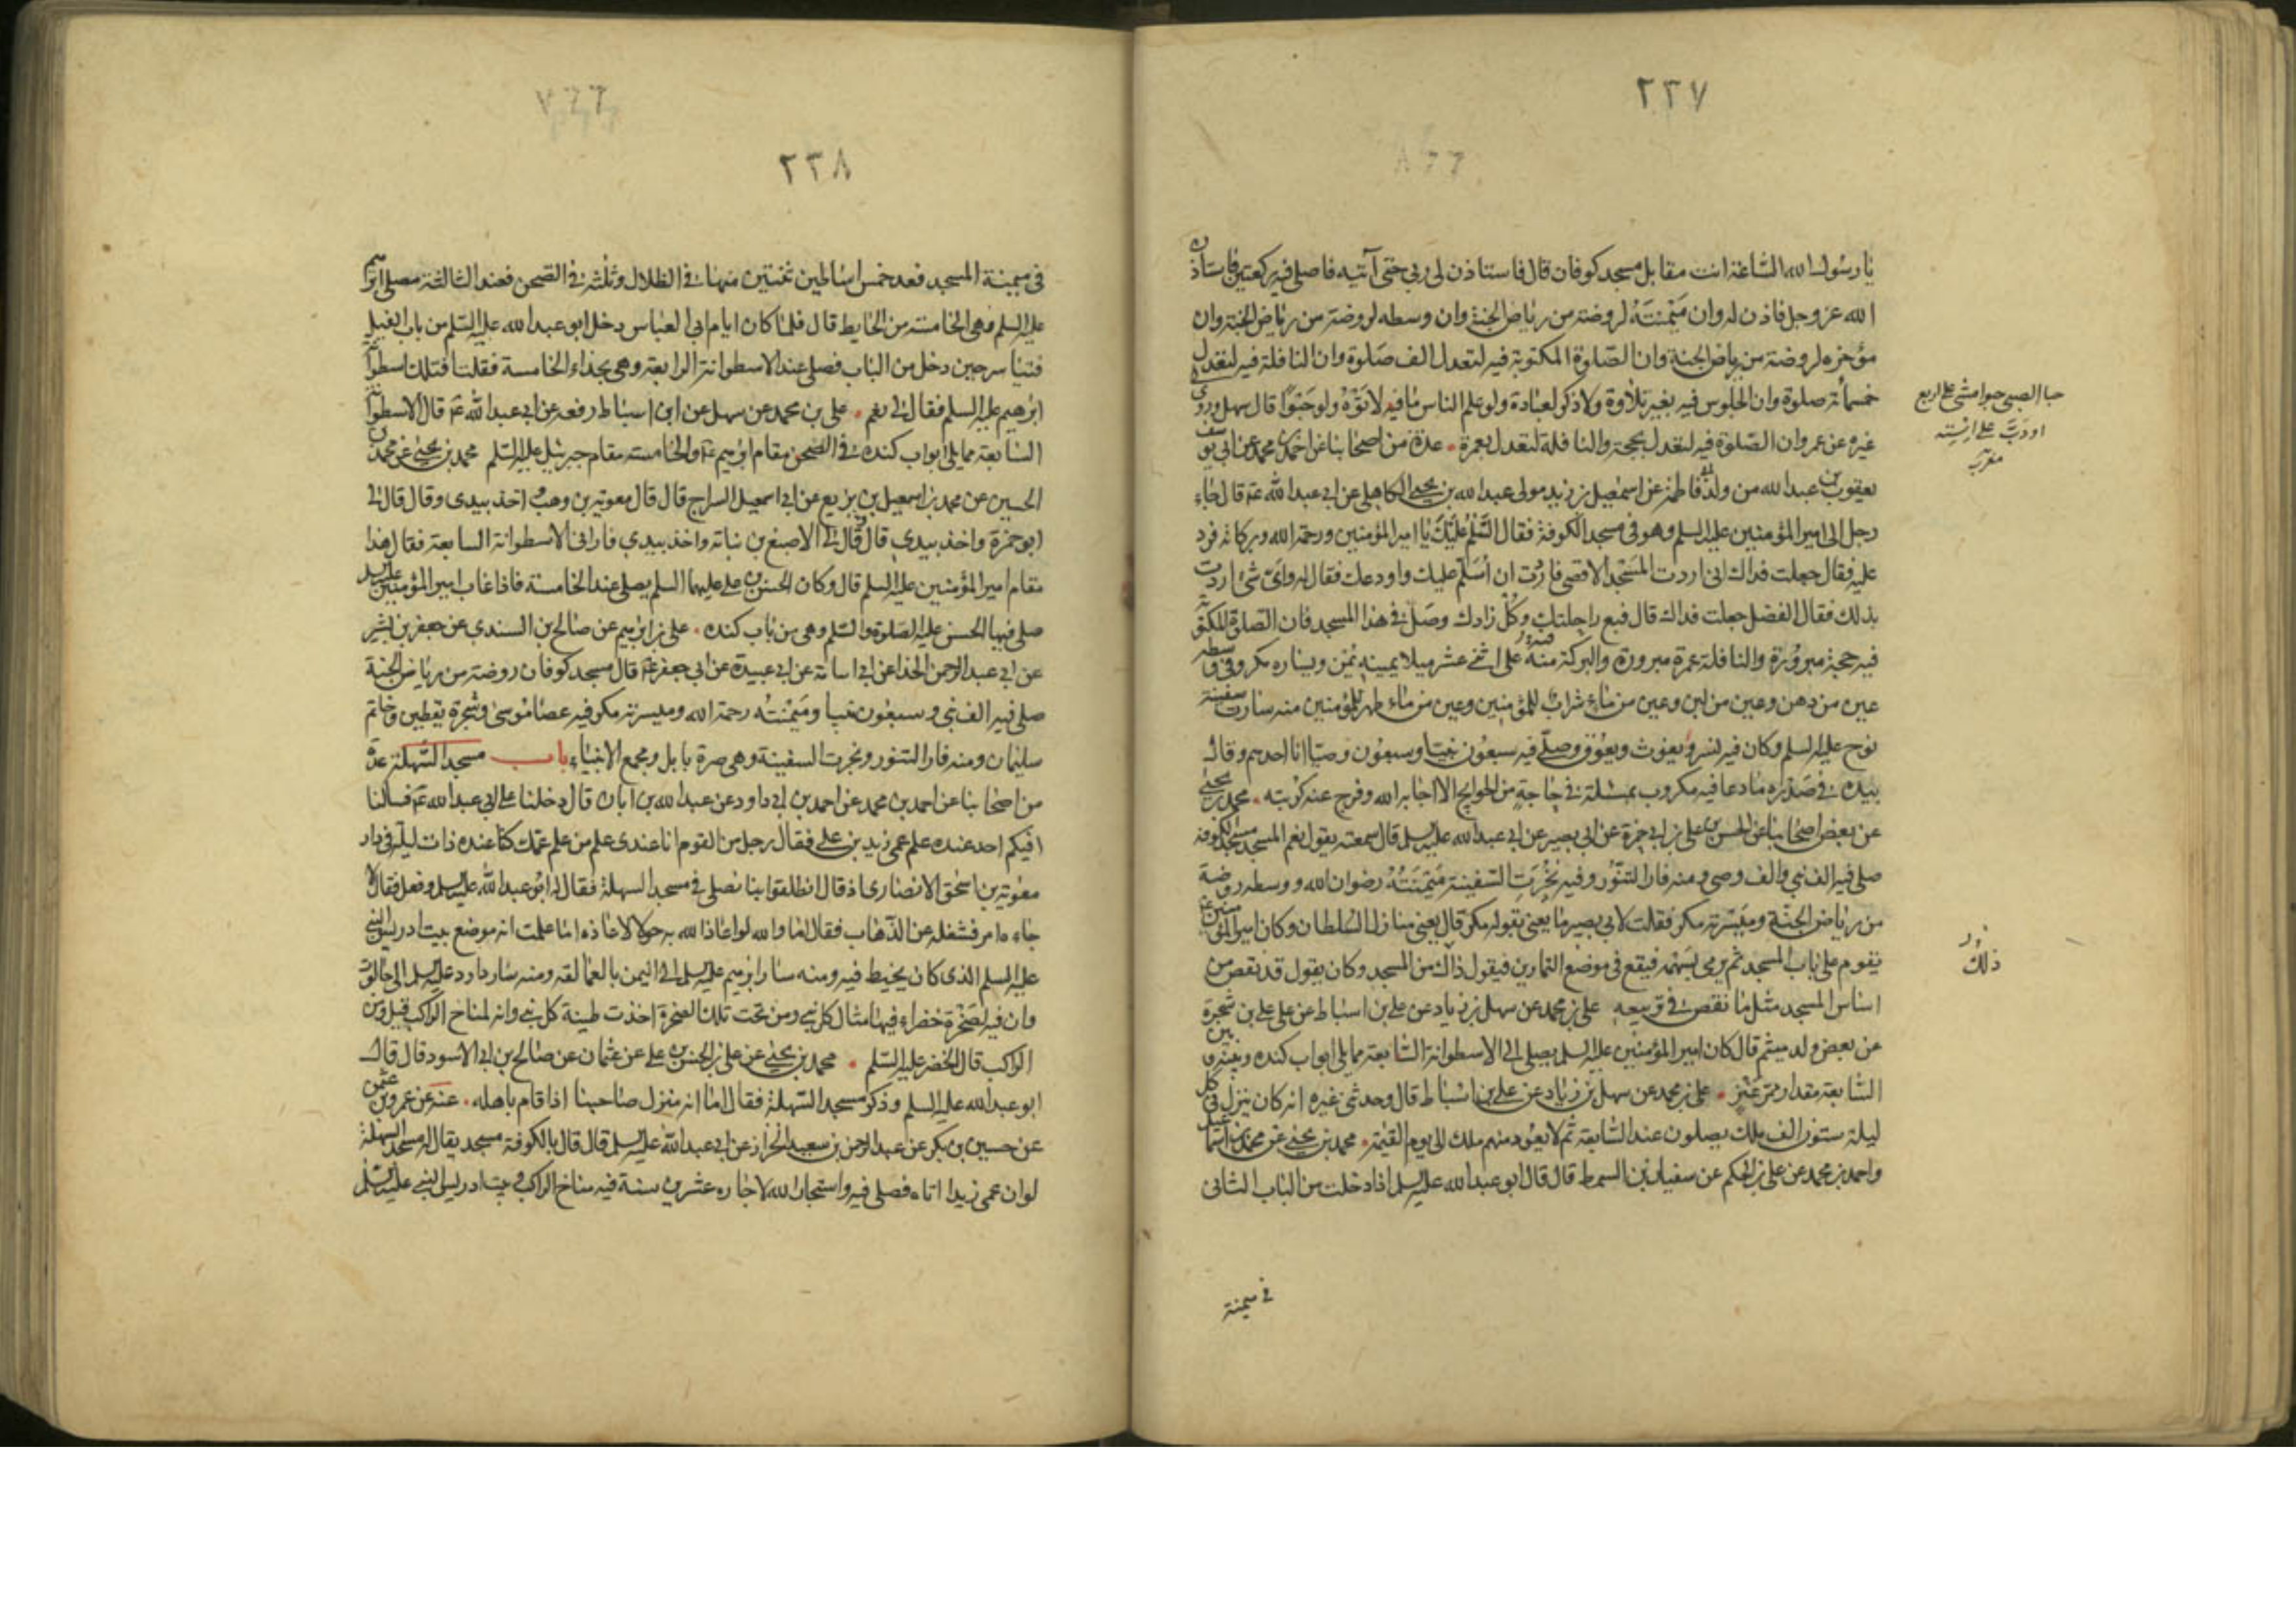 ٢٣٧
يا رسول الله الساعة انت مقابل مسجد كوفان قال فاستاذن لى ربى حتى آتيه فاصلى فيه ركعتين فاستاذن
الله عز وجل فاذن له وان ميمنته لروضة من رياض الجنة وان وسطه لروضة من رياض الجنة وان
مؤخره لروضة من رياض الجنة وان الصلوة المكتوبة فيه لتعدل الف صلوة وان النافلة فيه لتعدل
خمسمأئة صلوة وان الجلوس فيه بغير تلاوة ولا ذكر لعبادة ولو علم الناس ما فيه لاتوه ولو حبوا قال سهل وروى
غيره عن عمرو ان الصلوة فيه لتعدل بحجة والنافلة لتعدل بعمرة عدة من اصحابنا عن احمد بن محمد عن ابى يوسف
يعقوب بن عبد الله من ولد فاطمة عن اسمعيل بن زيد مولى عبد الله بن يحيى الكاهلى عن ابى عبد الله ع قال جاء
رجل الى امير المؤمنين عليه السلم وهو فى مسجد الكوفة فقال السلم عليك يا امير المؤمنين ورحمة الله وبركاته فرد
عليه فقال جعلت فداك انى اردت المسجد الاقصى فاردت ان اسلم عليك واودعك فقال له واى شئ اردت
بذلك فقال الفضل جعلت فداك قال فبع راحلتك وكل زادك وصل فى هذا المسجد فان الصلوة المكتوبة
فيه حجة مبرورة والنافلة عمرة مبرورة والبركة منه على اثنى عشر ميلا يمينه يمن ويساره مكر وفى وسطه
عين من دهن وعين من لبن وعين من ماء شراب للمؤمنين وعين من ماء طهر للمؤمنين منه سارت سفينة
نوح عليه السلم وكان فيه نسر ويغوث ويعوق وصلى فيه سبعون نبيا وسبعون وصيا انا احدهم وقال
بيده فى صدره ما دعا فيه مكروب بمسئلة فى حاجة من الحوايج الا اجابه الله وفرج عنه كربته محمد بن يحيى
عن بعض اصحابنا عن الحسن بن على بن ابى حمزة عن ابى بصير عن ابى عبد الله عليه السلم قال سمعته يقول نعم المسجد مسجد الكوفة
صلى فيه الف نبى والف وصى ومنه فار التنور وفيه نجرت السفينة ميمنته رضوان الله ووسطه روضة
من رياض الجنة وميسرته مكر فقلت لابى بصير ما يعنى بقوله مكر قال يعنى منازل السلطان وكان امير المؤمنين ع
يقوم على باب المسجد ثم يرمى بسهمه فيقع فى موضع التمارين فيقول ذاك من المسجد وكان يقول قد نقص من
اساس المسجد مثل ما نقص فى تربيعه على بن محمد عن سهل بن زياد عن على بن اسباط عن على بن شجرة
عن بعض ولد ميثم قال كان امير المؤمنين عليه السلم يصلى الى الاسطوانة السابعة مما يلى ابواب كنده وبينه وبين
السابعة مقدار ممر عنز على بن محمد عن سهل بن زياد عن على بن اسباط قال وحدثنى غيره انه كان ينزل فى كل
ليلة ستون الف ملك يصلون عند السابعة ثم لا يعود منهم ملك الى يوم القيمة محمد بن يحيى عن محمد بن اسمعيل
واحمد بن محمد عن على بن الحكم عن سفيان بن السمط قال قال ابو عبد الله عليه السلم اذا دخلت من الباب الثانى
فى ميمنة
حبا الصبى حبوا مشى على اربع
او دب على استه
مغرب
ذلك
٢٣٨
فى ميمنة المسجد فعد خمس اساطين ثنتين منها فى الظلال وثلثه فى الصحن فعند الثالثة مصلى ابرهيم
عليه السلم وهى الخامسة من الحايط قال فلما كان ايام ابى العباس دخل ابو عبد الله عليه السلم من باب الفيل
فتياسر حين دخل من الباب فصلى عند الاسطوانة الرابعة وهى بحذاء الخامسة فقلت افتلك اسطوانة
ابرهيم عليه السلم فقال لى نعم على بن محمد عن سهل عن ابن اسباط رفعه عن ابى عبد الله ع قال الاسطوانة
السابعة مما يلى ابواب كنده فى الصحن مقام ابرهيم ع والخامسه مقام جبرئيل عليه السلم محمد بن يحيى عن محمد بن
الحسين عن محمد بن اسمعيل بن بزيع عن ابى اسمعيل السراج قال قال معوية بن وهب اخذ بيدى وقال قال لى
ابو حمزة واخذ بيدى قال وقال لى الاصبغ بن نباته واخذ بيدى فارانى الاسطوانة السابعة فقال هذا
مقام امير المؤمنين عليه السلم قال وكان الحسن بن على عليهما السلم يصلى عند الخامسة فاذا غاب امير المؤمنين عليه السلم
صلى فيها الحسن عليه الصلوة والسلم وهى من باب كنده على بن ابرهيم عن صالح بن السندى عن جعفر بن بشير
عن ابى عبد الرحمن الحذا عن ابى اسامة عن ابى عبيدة عن ابى جعفر ع قال مسجد كوفان روضة من رياض الجنة
صلى فيه الف نبى وسبعون نبيا وميمنته رحمة الله وميسرته مكر فيه عصا موسى وشجرة يقطين وخاتم
سليمان ومنه فار التنور ونجرت السفينة وهى صرة بابل ومجمع الانبياء باب مسجد السهلة عدة
من اصحابنا عن احمد بن محمد عن احمد بن ابى داود عن عبد الله بن ابان قال دخلنا على ابى عبد الله ع فسالنا
افيكم احد عنده علم عمى زيد بن على فقال رجل من القوم انا عندى علم من علم عمك كنا عنده ذات ليلة فى دار
معوية بن اسحق الانصارى اذ قال انطلقوا بنا نصلى فى مسجد السهلة فقال له ابو عبد الله عليه السلم وفعل فقال لا
جاءه امر فشغله عن الذهاب فقال اما والله لو اعاذ الله به حولا لاعاذه اما علمت انه موضع بيت ادريس النبى
عليه السلم الذى كان يخيط فيه ومنه سار ابرهيم عليه السلم الى اليمن بالعمالقه ومنه سار داود عليه السلم الى جالوت
وان فيه لصخرة خضراء فيها مثال كل نبى ومن تحت تلك الصخرة اخذت طينة كل نبى وانه لمناخ الراكب قيل ومن
الراكب قال الخضر عليه السلم محمد بن يحيى عن على بن الحسن بن على عن عثمان عن صالح بن ابى الاسود قال قال
ابو عبد الله عليه السلم وذكر مسجد السهلة فقال اما انه منزل صاحبنا اذا قام باهله عنه عن عمرو بن عثمن
عن حسين بن بكر عن عبد الرحمن بن سعيد الخزاز عن ابى عبد الله عليه السلم قال قال بالكوفة مسجد يقال له مسجد السهلة
لو ان عمى زيدا اتاه فصلى فيه واستجار الله لاجاره عشرين سنة فيه مناخ الراكب وبيت ادريس النبى عليه السلم